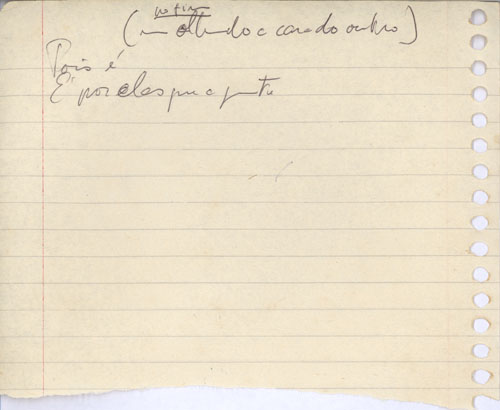 no fim
(um olhando a cara do outro)
Pois é
É por elas que a gente